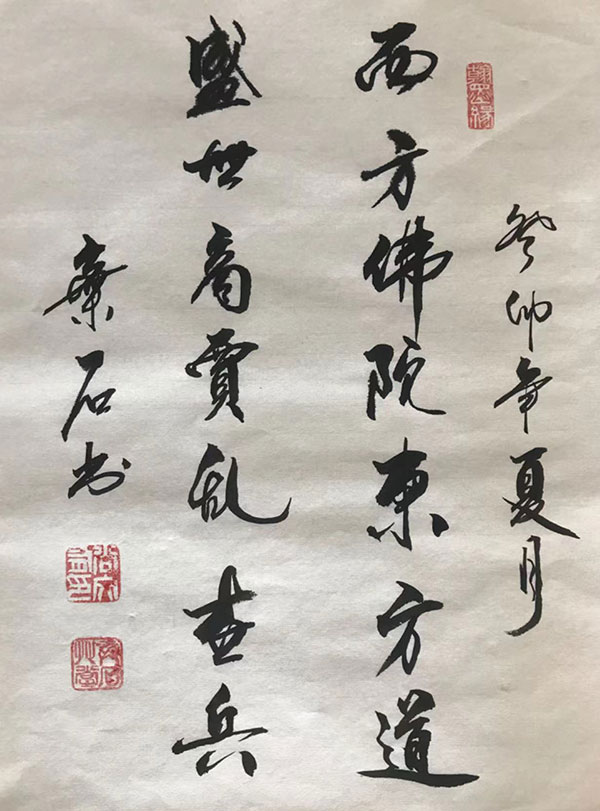 癸卯年夏月
西方佛院東方道
盛世商賈乱世兵
弃石书